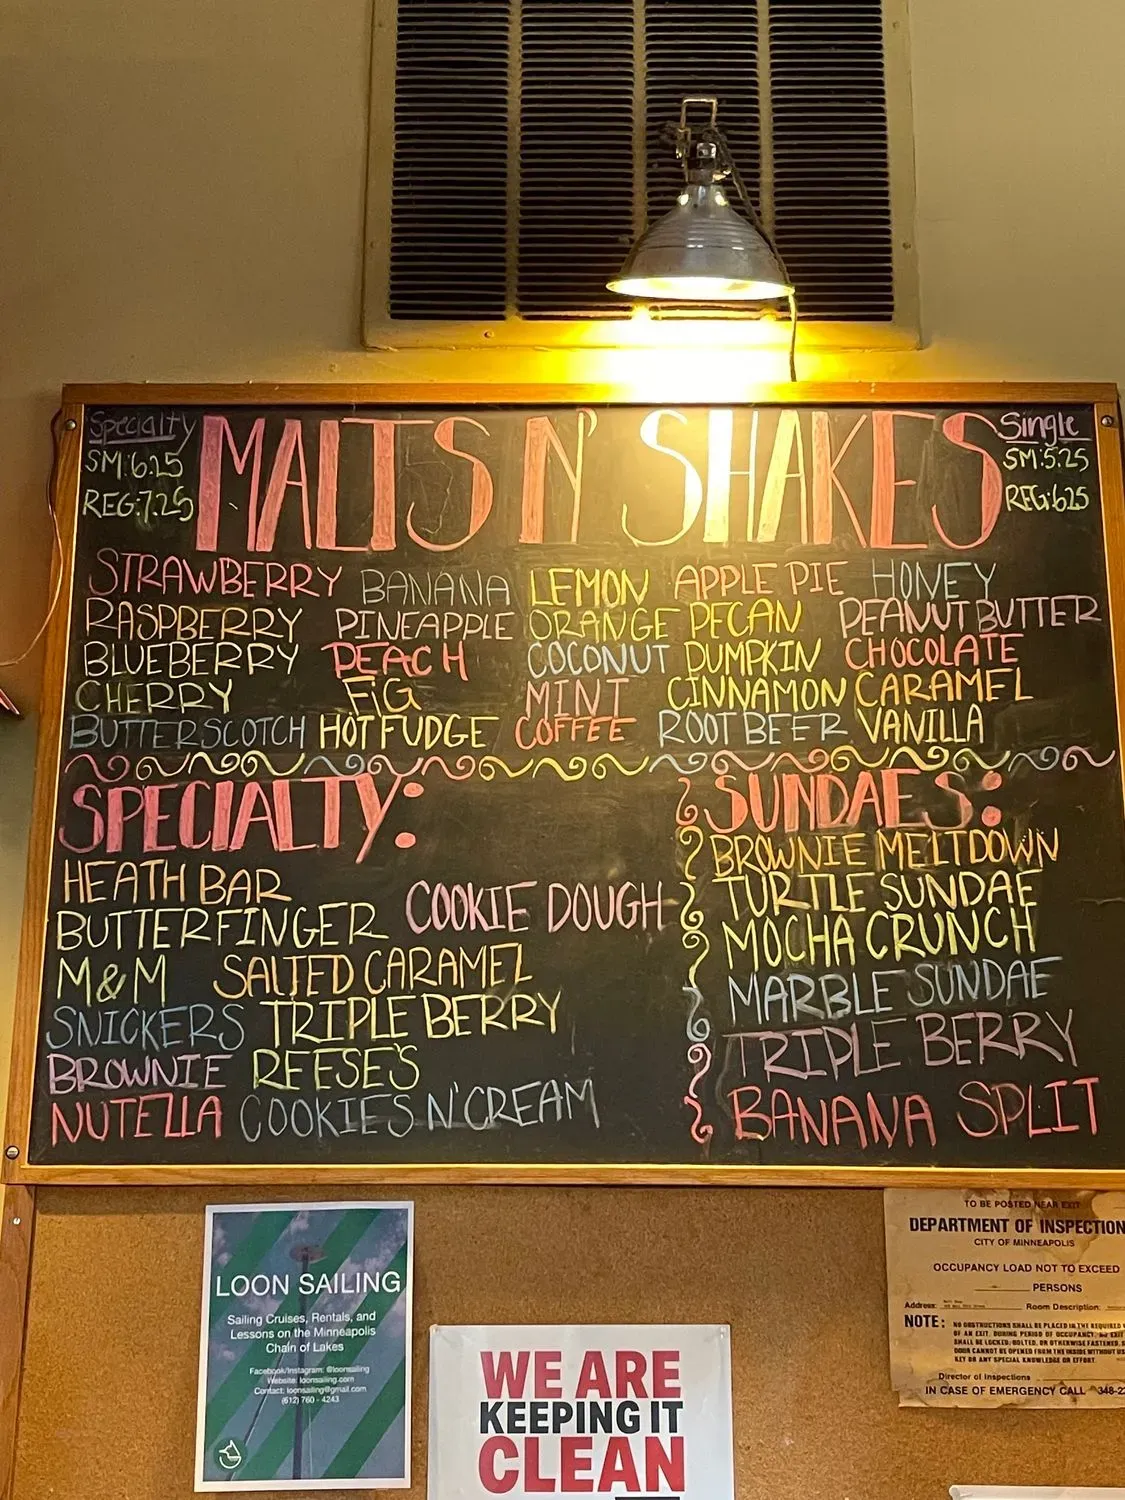 Specialty
SM:6.25
REG:7.25
MALTS N' SHAKES
Single
SM:5.25
REG:6.25
STRAWBERRY BANANA LEMON APPLE PIE HONEY
RASPBERRY PINEAPPLE ORANGE PECAN PEANUT BUTTER
BLUEBERRY PEACH COCONUT PUMPKIN CHOCOLATE
CHERRY FiG MINT CINNAMON CARAMEL
BUTTERSCOTCH HOT FUDGE COFFEE ROOT BEER VANILLA
SPECIALTY:
HEATH BAR
BUTTERFINGER COOKIE DOUGH
M&M SALTED CARAMEL
SNICKERS TRIPLE BERRY
BROWNIE REESE'S
NUTELLA COOKIES N' CREAM
SUNDAES:
BROWNIE MELTDOWN
TURTLE SUNDAE
MOCHA CRUNCH
MARBLE SUNDAE
TRIPLE BERRY
BANANA SPLIT
LOON SAILING
Sailing Cruises, Rentals, and
Lessons on the Minneapolis
Chain of Lakes
Facebook/Instagram: @loonsailing
Website: loonsailing.com
Contact: loonsailing@gmail.com
(612) 760 - 4243
WE ARE
KEEPING IT
CLEAN
TO BE POSTED NEAR EXIT
DEPARTMENT OF INSPECTION
CITY OF MINNEAPOLIS
OCCUPANCY LOAD NOT TO EXCEED
PERSONS
Address: Room Description:
NOTE: NO OBSTRUCTIONS SHALL BE PLACED IN THE REQUIRED
OF AN EXIT. DURING PERIOD OF OCCUPANCY, NO EXIT
SHALL BE LOCKED, BOLTED, OR OTHERWISE FASTENED
DOOR CANNOT BE OPENED FROM THE INSIDE WITHOUT
KEY OR ANY SPECIAL KNOWLEDGE OR EFFORT
Director of Inspections
IN CASE OF EMERGENCY CALL 348-2